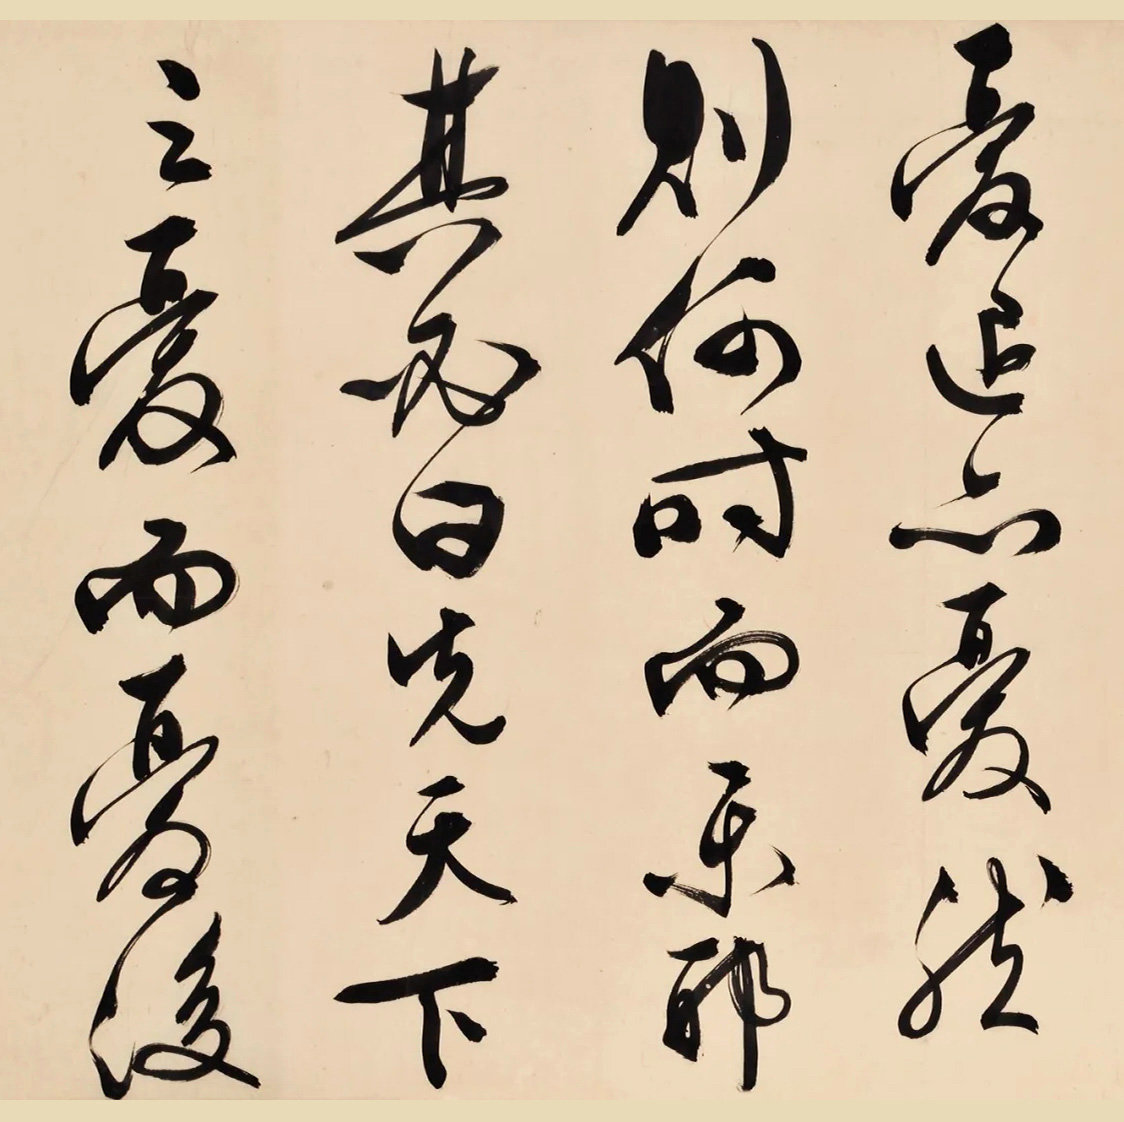 憂退亦憂然
則何時而樂耶
其必曰先天下
之憂而憂後